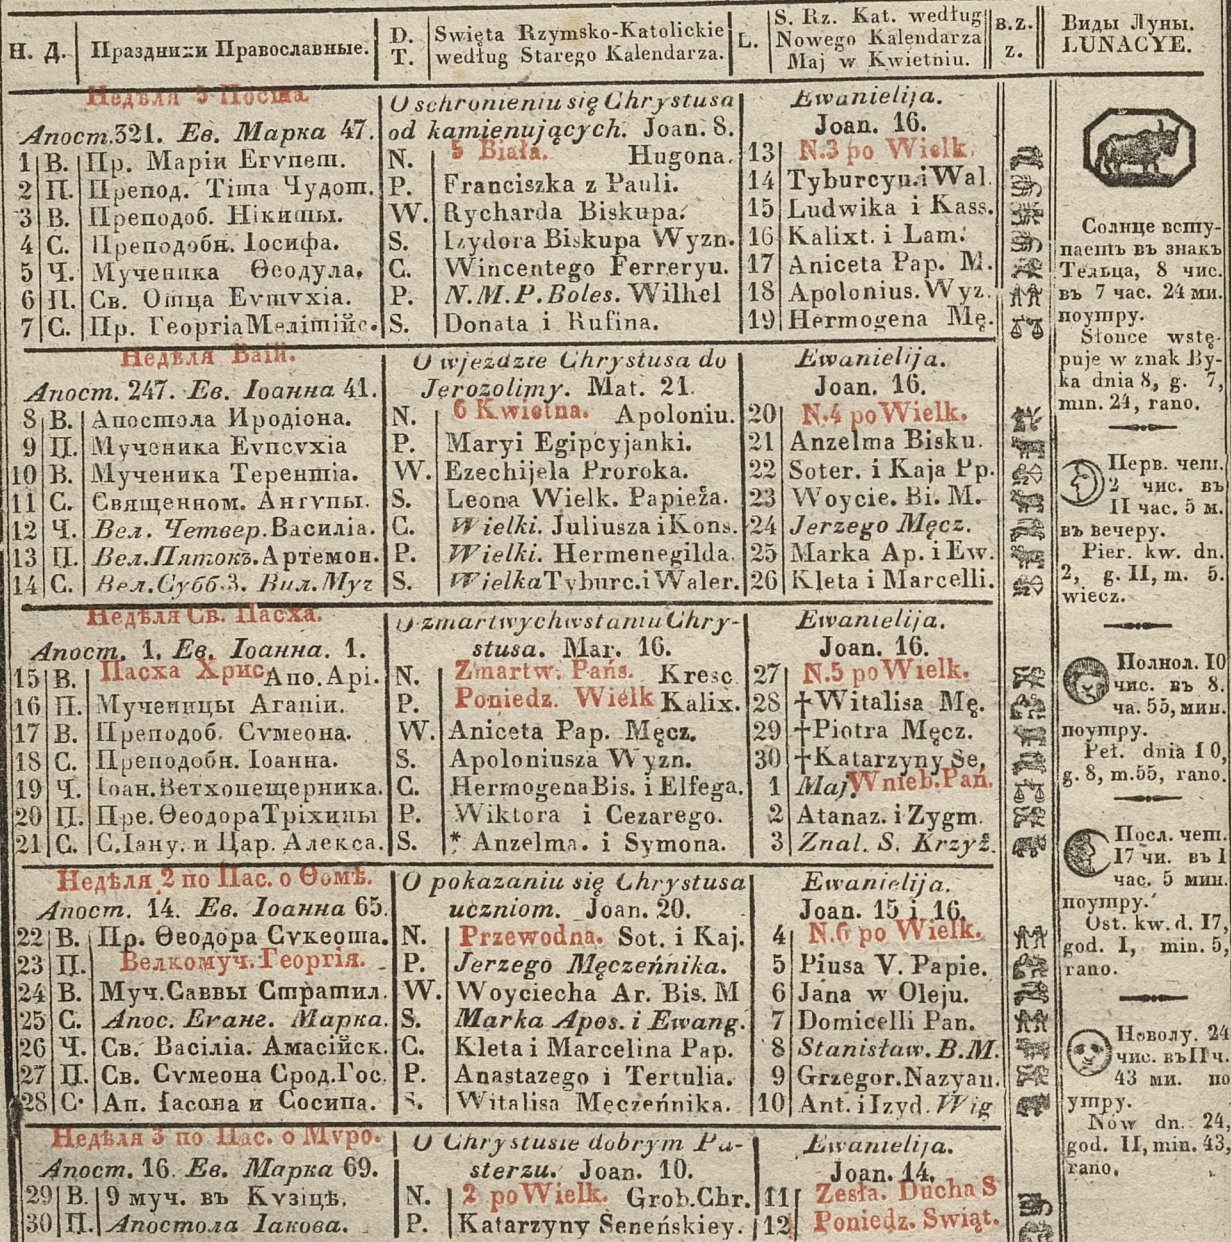 Н. Д. Праздники Православные. D. T. Święta Rzymsko-Katolickie według Starego Kalendarza. L. S. Rz. Kat. według Nowego Kalendarza Maj w Kwietniu. B.Z. Z. Виды Луны. LUNACYE.
Недѣля 5 Поста O schronieniu się Chrystusa Ewanielija.
Апост. 321. Ев. Марка 47. od kamienujących. Joan. 8. Joan. 16.
1 В. Пр. Маріи Егѵпет. N. 5 Biała. Hugona. 13 N.3 po Wielk.
2 П. Препод. Тіта Чудот. P. Franciszka z Pauli. 14 Tyburcyu. i Wal.
3 В. Преподоб. Нікиты. W. Rycharda Biskupa. 15 Ludwika i Kass.
4 С. Преподобн. Іосифа. S. Izydora Biskupa Wyzn. 16 Kalixt. i Lam.
5 Ч. Мученика Ѳеодула. C. Wincentego Ferreryu. 17 Aniceta Pap. M.
6 П. Св. Отца Евтѵхіа. P. N.M.P.Boles. Wilhel 18 Apolonius. Wyz.
7 С. Пр. Георгіа Мелітійс. S. Donata i Rufina. 19 Hermogena Mę.
Недѣля Ваій. O wjezdzie Chrystusa do Ewanielija.
Апост. 247. Ев. Іоанна 41. Jerozolimy. Mat. 21. Joan. 16.
8 В. Апостола Иродіона. N. 6 Kwietna. Apoloniu. 20 N.4 po Wielk.
9 П. Мученика Еѵпсѵхіа P. Maryi Egipcyjanki. 21 Anzelma Bisku.
10 В. Мученика Терентіа. W. Ezechijela Proroka. 22 Soter. i Kaja Pp.
11 С. Священном. Антѵпы. S. Leona Wielk. Papieża. 23 Woycie. Bi. M.
12 Ч. Вел. Четвер. Василіа. C. Wielki. Juliusza i Kons. 24 Jerzego Męcz.
13 П. Вел. Пятокъ. Артемон. P. Wielki. Hermenegilda. 25 Marka Ap. i Ew.
14 С. Вел. Субб. S. Wielka Tyburc. i Waler. 26 Kleta i Marcelli.
Недѣля Св. Пасха. O zmartwychwstaniu Chry- Ewanielija.
Апост. 1. Ев. Іоанна. 1. stusa. Mar. 16. Joan. 16.
15 В. Пасха Хрис. Апо. Арі. N. Zmartw. Pańs. Kresc. 27 N.5 po Wielk.
16 П. Мученицы Агапіи. P. Poniedz. Wielk Kalix. 28 †Witalisa Mę.
17 В. Преподоб. Сѵмеона. W. Aniceta Pap. Męcz. 29 †Piotra Męcz.
18 С. Преподобн. Іоанна. S. Apoloniusza Wyzn. 30 †Katarzyny Se.
19 Ч. Іоан. Ветхопещерника. C. Hermogena Bis. i Elfega. 1 Maj. Wnieb. Pań.
20 П. Пре. Ѳеодора Тріхины P. Wiktora i Cezarego. 2 Atanaz. i Zygm.
21 С. С. Іану. и Цар. Алекса. S. * Anzelma. i Symona. 3 Znal. S. Krzyż.
Недѣля 2 по Пас. о Ѳомѣ. O pokazaniu się Chrystusa Ewanielija.
Апост. 14. Ев. Іоанна 65. uczniom. Joan. 20. Joan. 15 i 16.
22 В. Пр. Ѳеодора Сѵкеота. N. Przewodna. Sot. i Kaj. 4 N.6 po Wielk.
23 П. Велкомуч. Георгія. P. Jerzego Męczeńnika. 5 Piusa V. Papie.
24 В. Муч. Саввы Стратил. W. Woyciecha Ar. Bis. M 6 Jana w Oleju.
25 С. Апос. Еѵанг. Марка. S. Marka Apos. i Ewang. 7 Domicelli Pan.
26 Ч. Св. Василіа. Амасійск. C. Kleta i Marcelina Pap. 8 Stanisław. B.M.
27 П. Св. Сѵмеона Срод. Гос. P. Anastazego i Tertulia. 9 Grzegor. Nazyan.
28 С. Ап. Іасона и Сосипа. S. Witalisa Męczeńnika. 10 Ant. i Izyd. Wig
Недѣля 3 по Пас. о Мѵро. O Chrystusie dobrym Pa- Ewanielija.
Апост. 16. Ев. Марка 69. sterzu. Joan. 10. Joan. 14.
29 В. 9 муч. въ Кѵзіцѣ. N. 2 po Wielk. Grob. Chr. 11 Zesła. Ducha S
30 П. Апостола Іакова. P. Katarzyny Seneńskiey. 12 Poniedz. Swiąt.
Солнце всту-
паетъ въ знакъ
Тельца, 8 чис.
въ 7 час. 24 ми.
поутру.
Słonce wstę-
puje w znak By-
ka dnia 8, g. 7,
min. 24, rano.
Перв. чет.
2 чис. въ
II час. 5 м.
въ вечеру.
Pier. kw. dn.
2, g. II, m. 5.
wiecz.
Полнол. 10
чис. въ 8.
ча. 55, мин.
поутру.
Peł. dnia 10,
g. 8, m. 55, rano.
Посл. чет.
17 чи. въ I
час. 5 мин.
поутру.
Ost. kw. d. 17,
god. I, min. 5,
rano.
Новолу. 24
чис. въ II ч.
43 ми. по
утру.
Now dn. 24,
god. II, min. 43,
rano.